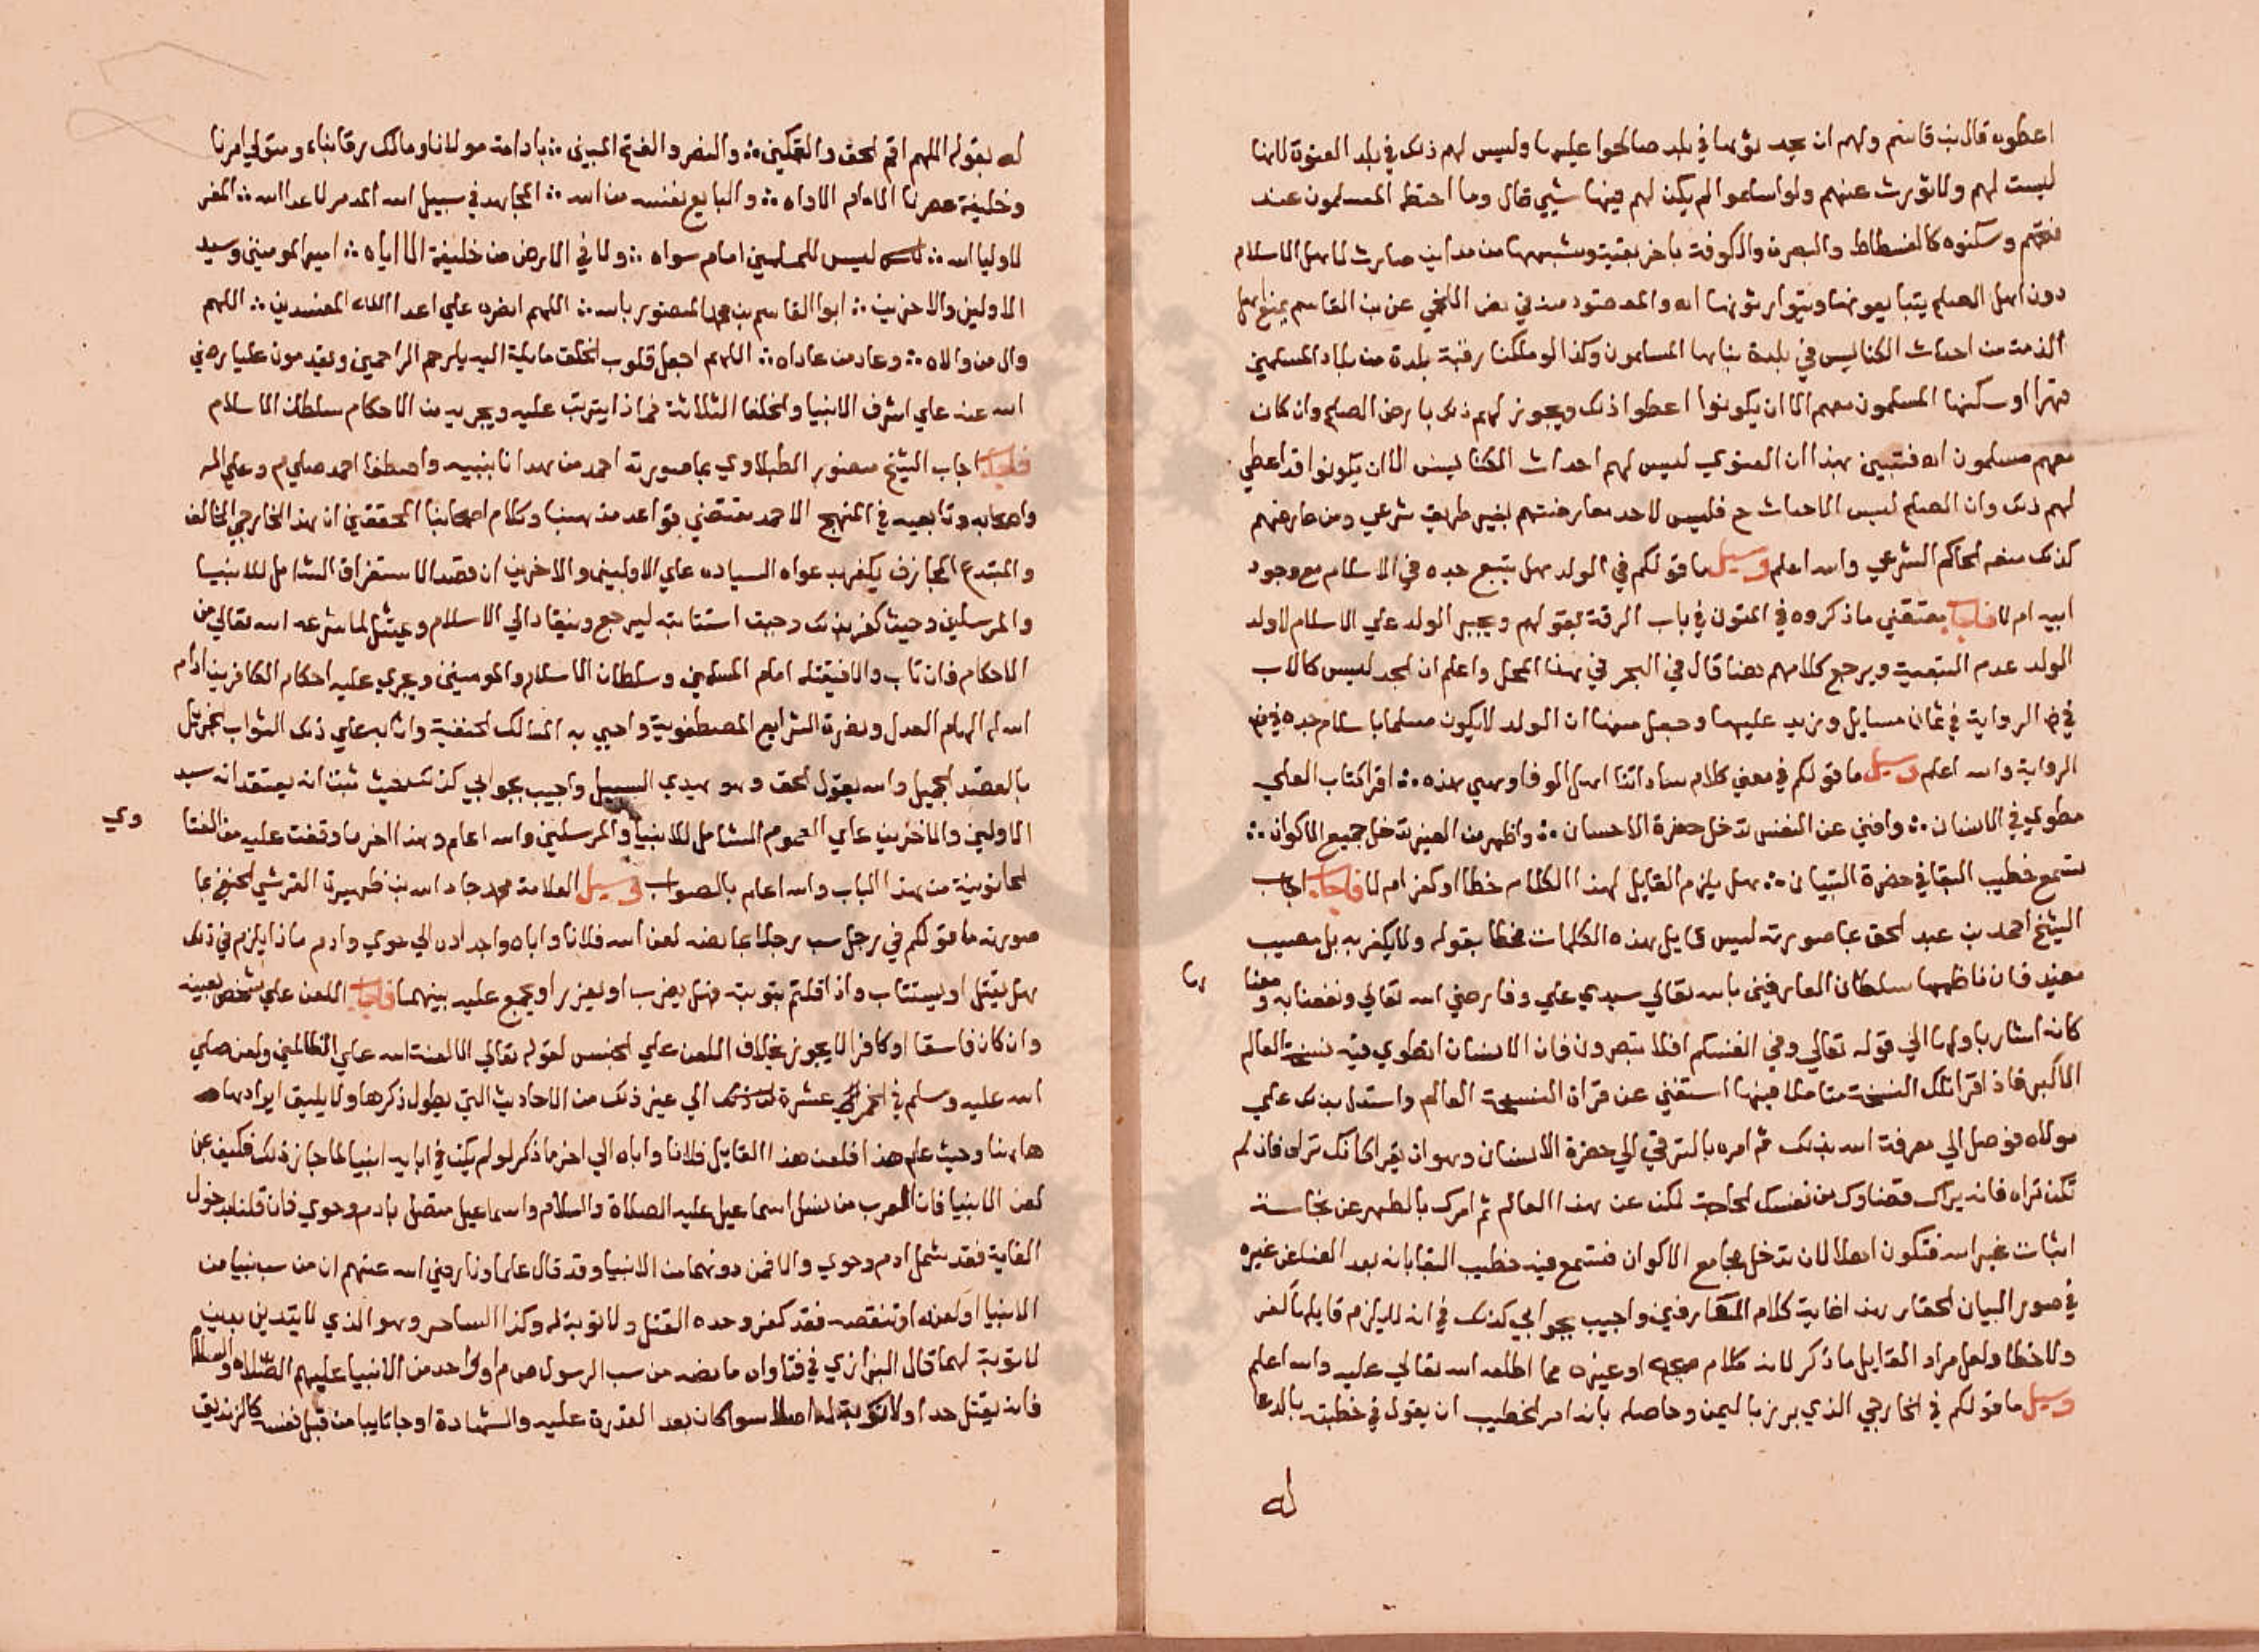 اعطوه قال بن قاسم ولهم ان يحدثوها في بلد صالحوا عليها وليس لهم ذلك في بلد العنوة لانها
ليست لهم ولا تورث عنهم ولو اسلموا لم يكن لهم فيها شي قال وما اختط المسلمون عند
فتحهم وسكنوه كالفسطاط والبصرة والكوفة وشبهها من مداين صارت لاهل الاسلام
دون اهل الصلح يتبايعونها ويتوارثونها اه والمقصود منه في نص اللخمي عن بن القاسم يمنع اهل
الذمة من احداث الكنايس في بلدة بناها المسلمون وكذا لو ملكنا رقبة بلدة من بلاد المسلمين
قهرا او سكنها المسلمون معهم الا ان يكونوا اعطوا ذلك ويجوز لهم ذلك بارض الصلح وان كان
معهم مسلمون اه فتبين بهذا ان العنوي ليس لهم احداث الكنايس الا ان يكونوا قد اعطي
لهم ذلك وان الصلح لبس الاحداث ح فليس لاحد معارضتهم بغير طريق شرعي ومن عارضهم
كذلك منعه الحاكم الشرعي والله اعلم وسيل ما قولكم في الولد هل يتبع جده في الاسلام مع وجود
ابيه ام لا فاجاب مقتضي ما ذكروه في المتون في باب الرقة بقولهم ويجبر الولد علي الاسلام لا ولد
الولد عدم التبعية ويرجع كلامهم هنا قال في البحر في هذا المحل واعلم ان الجد ليس كالاب
في ض الرواية في ثمان مسايل وزيد عليها وجعل منها ان الولد لا يكون مسلما باسلام جده في ض
الرواية والله اعلم وسيل ما قولكم في معني كلام ساداتنا اهل الوفا وهي هذه ؞ اقرا كتاب العلي
مطوي في الانسان ؞ وافني عن النفس تدخل حضرة الاحسان ؞ واطهر من الغير تدخل جميع الاكوان ؞
تسمع خطيب البقا في حضرة التبيان ؞ هل يلزم القايل لهذا الكلام خطا او كفر ام لا فاجاب اجاب
الشيخ احمد بن عبد الحق بما صورته ليس قايل هذه الكلمات مخطا بقوله ولا يكفر به بل مصيب
مفيد فان ناظمها سلطان العارفين بالله تعالي سيدي علي وفا رضي الله تعالي ونفعنا به ومعنا ها
كانه اشار باولها الي قوله تعالي وفي انفسكم افلا تبصرون فان الانسان انطوي فيه نسخة العالم
الاكبر فاذا قرا تلك النسخة متاملا فيها استغني عن قراة النسخة العالم واستدل بذلك علي
مولاه فوصل الي معرفة الله بذلك ثم امره بالترقي الي حضرة الانسان وهو ان يقرا كانك تراه فان لم
تكن تراه فانه يراك فضاوك من نفسك لحاجة لمكن عن هذا العالم ثم امرك بالطهر عن نجاسة
اثبات غير الله فتكون اهلا لان تدخل مجامع الاكوان فتسمع فيه خطيب البقا بانه بعد الفنا عن غيره
في صور البيان الحقا هذا غاية كلام العارفين واجيب بجوابي كذلك في انه لا يلزم قايلها كفر
ولا خطا ولعل مراد القايل ما ذكر لانه كلام او غيره مما اطلعه الله تعالي عليه والله اعلم
وسيل ما قولكم في الخارجي الذي برز باليمن وحاصله بانه امر الخطيب ان يقول في خطبته بالدعا
له
له بقوله اللهم اقم الحق والتمكين ؞ والنصر والفتح المبين ؞ بادامة مولانا ومالك رقابنا ومتولي امرنا
وخليفة عصرنا الامام الاواه ؞ والبايع نفسه من الله ؞ المجاهد في سبيل الله المدمر لاعدا الله ؞ المعز
لاوليا الله ؞ ليس للمسلمين امام سواه ؞ ولا في الارض من خليفة الا اياه ؞ امير المومنين وسيد
الاولين والاخرين ؞ ابو القاسم بن محمد المنصور بالله ؞ اللهم انصره علي اعدا الله المفسدين ؞ اللهم
وال من والاه ؞ وعاد من عاداه ؞ اللهم اجعل قلوب الخلق مايلة اليه يا ارحم الراحمين ويقدمون عليا رضي
الله عنه علي اشرف الانبيا والخلفا الثلاثة فماذا يترتب عليه ويجريه من الاحكام سلطان الاسلام
فاجاب اجاب الشيخ منصور الطبلاوي بما صورته احمد من هدانا بنبيه واصطفا احمد صلي م وعلي اله
واصحابه وتابعيه في المنهج الاحمد مقتضي قواعد مذهبنا وكلام اصحابنا المحققين ان هذا الخارجي المخالف
والمبتدع المجازف يكفر بدعواه السيادة علي الاولين والاخرين ان قصد الاستغراق الشامل للانبيا
والمرسلين وحيث كفر بذلك وجبت استتابته ليرجع وينقاد الي الاسلام ويمتثل لما شرعه الله تعالي من
الاحكام فان تاب والا فيقتله امام المسلمين وسلطان الاسلام والمومنين ويجري عليه احكام الكافرين ادام
الله له الهام العدل ونصرة الشرايع المصطفوية واحيي به المسالك الحنفية واثابه علي ذلك الثواب الجزيل
بالقصد الجميل والله يقول الحق وهو يهدي السبيل واجيب بجوابي كذلك حيث ثبت انه يعتقد انه سيد
الاولين والاخرين علي العموم الشامل للانبيا والمرسلين والله اعلم وهذا اخر ما وقفت عليه من الفتا وي
الحانوتية من هذا الباب والله اعلم بالصواب وسيل العلامة محمد جاد الله بن ظهيرة القرشي الحنفي بما
صورته ما قولكم في رجل سب رجلا بما نصه لعن الله فلانا واباه واجداده الي حوي وادم ماذا يلزم في ذلك
هل يقتل او يستتاب واذا قلتم بتوبته فهل يضرب او يعزر او يجمع عليه بينهما فاجاب اللعن علي شخص بعينه
وان كان فاسقا او كافرا لا يجوز بخلاف اللعن علي الجنس لقوله تعالي الا لعنة الله علي الظالمين ولعن صلي
الله عليه وسلم في الخمر عشرة الي غير ذلك من الاحاديث التي يطول ذكرها ولا يليق ايرادها
هاهنا وحيث علم هذا فلعن هذا القايل فلانا واباه الي اخر ما ذكر لو لم يكن في ابايه انبيا لما جاز ذلك فكيف عن
لعن الانبيا فان العرب من نسل اسماعيل عليه الصلاة والسلام واسماعيل متصل بادم وحوي فان قلنا بدخول
الغاية فقد شمل ادم وحوي والا فمن دونهما من الانبيا وقد قال علماونا رضي الله عنهم ان من سب نبيا من
الانبيا او لعنه او تنقصه فقد كفر وحده القتل ولا توبة له وكذا الساحر وهو الذي لا يتدين بدين
لا توبة لهما قال البزازي في فتاواه ما نصه من سب الرسول ص م او واحد من الانبيا عليهم الصلاة والسلام
فانه يقتل حدا ولا توبة له اصلا سوا كان بعد القدرة عليه والشهادة او جا تايبا من قبل نفسه كالزنديق